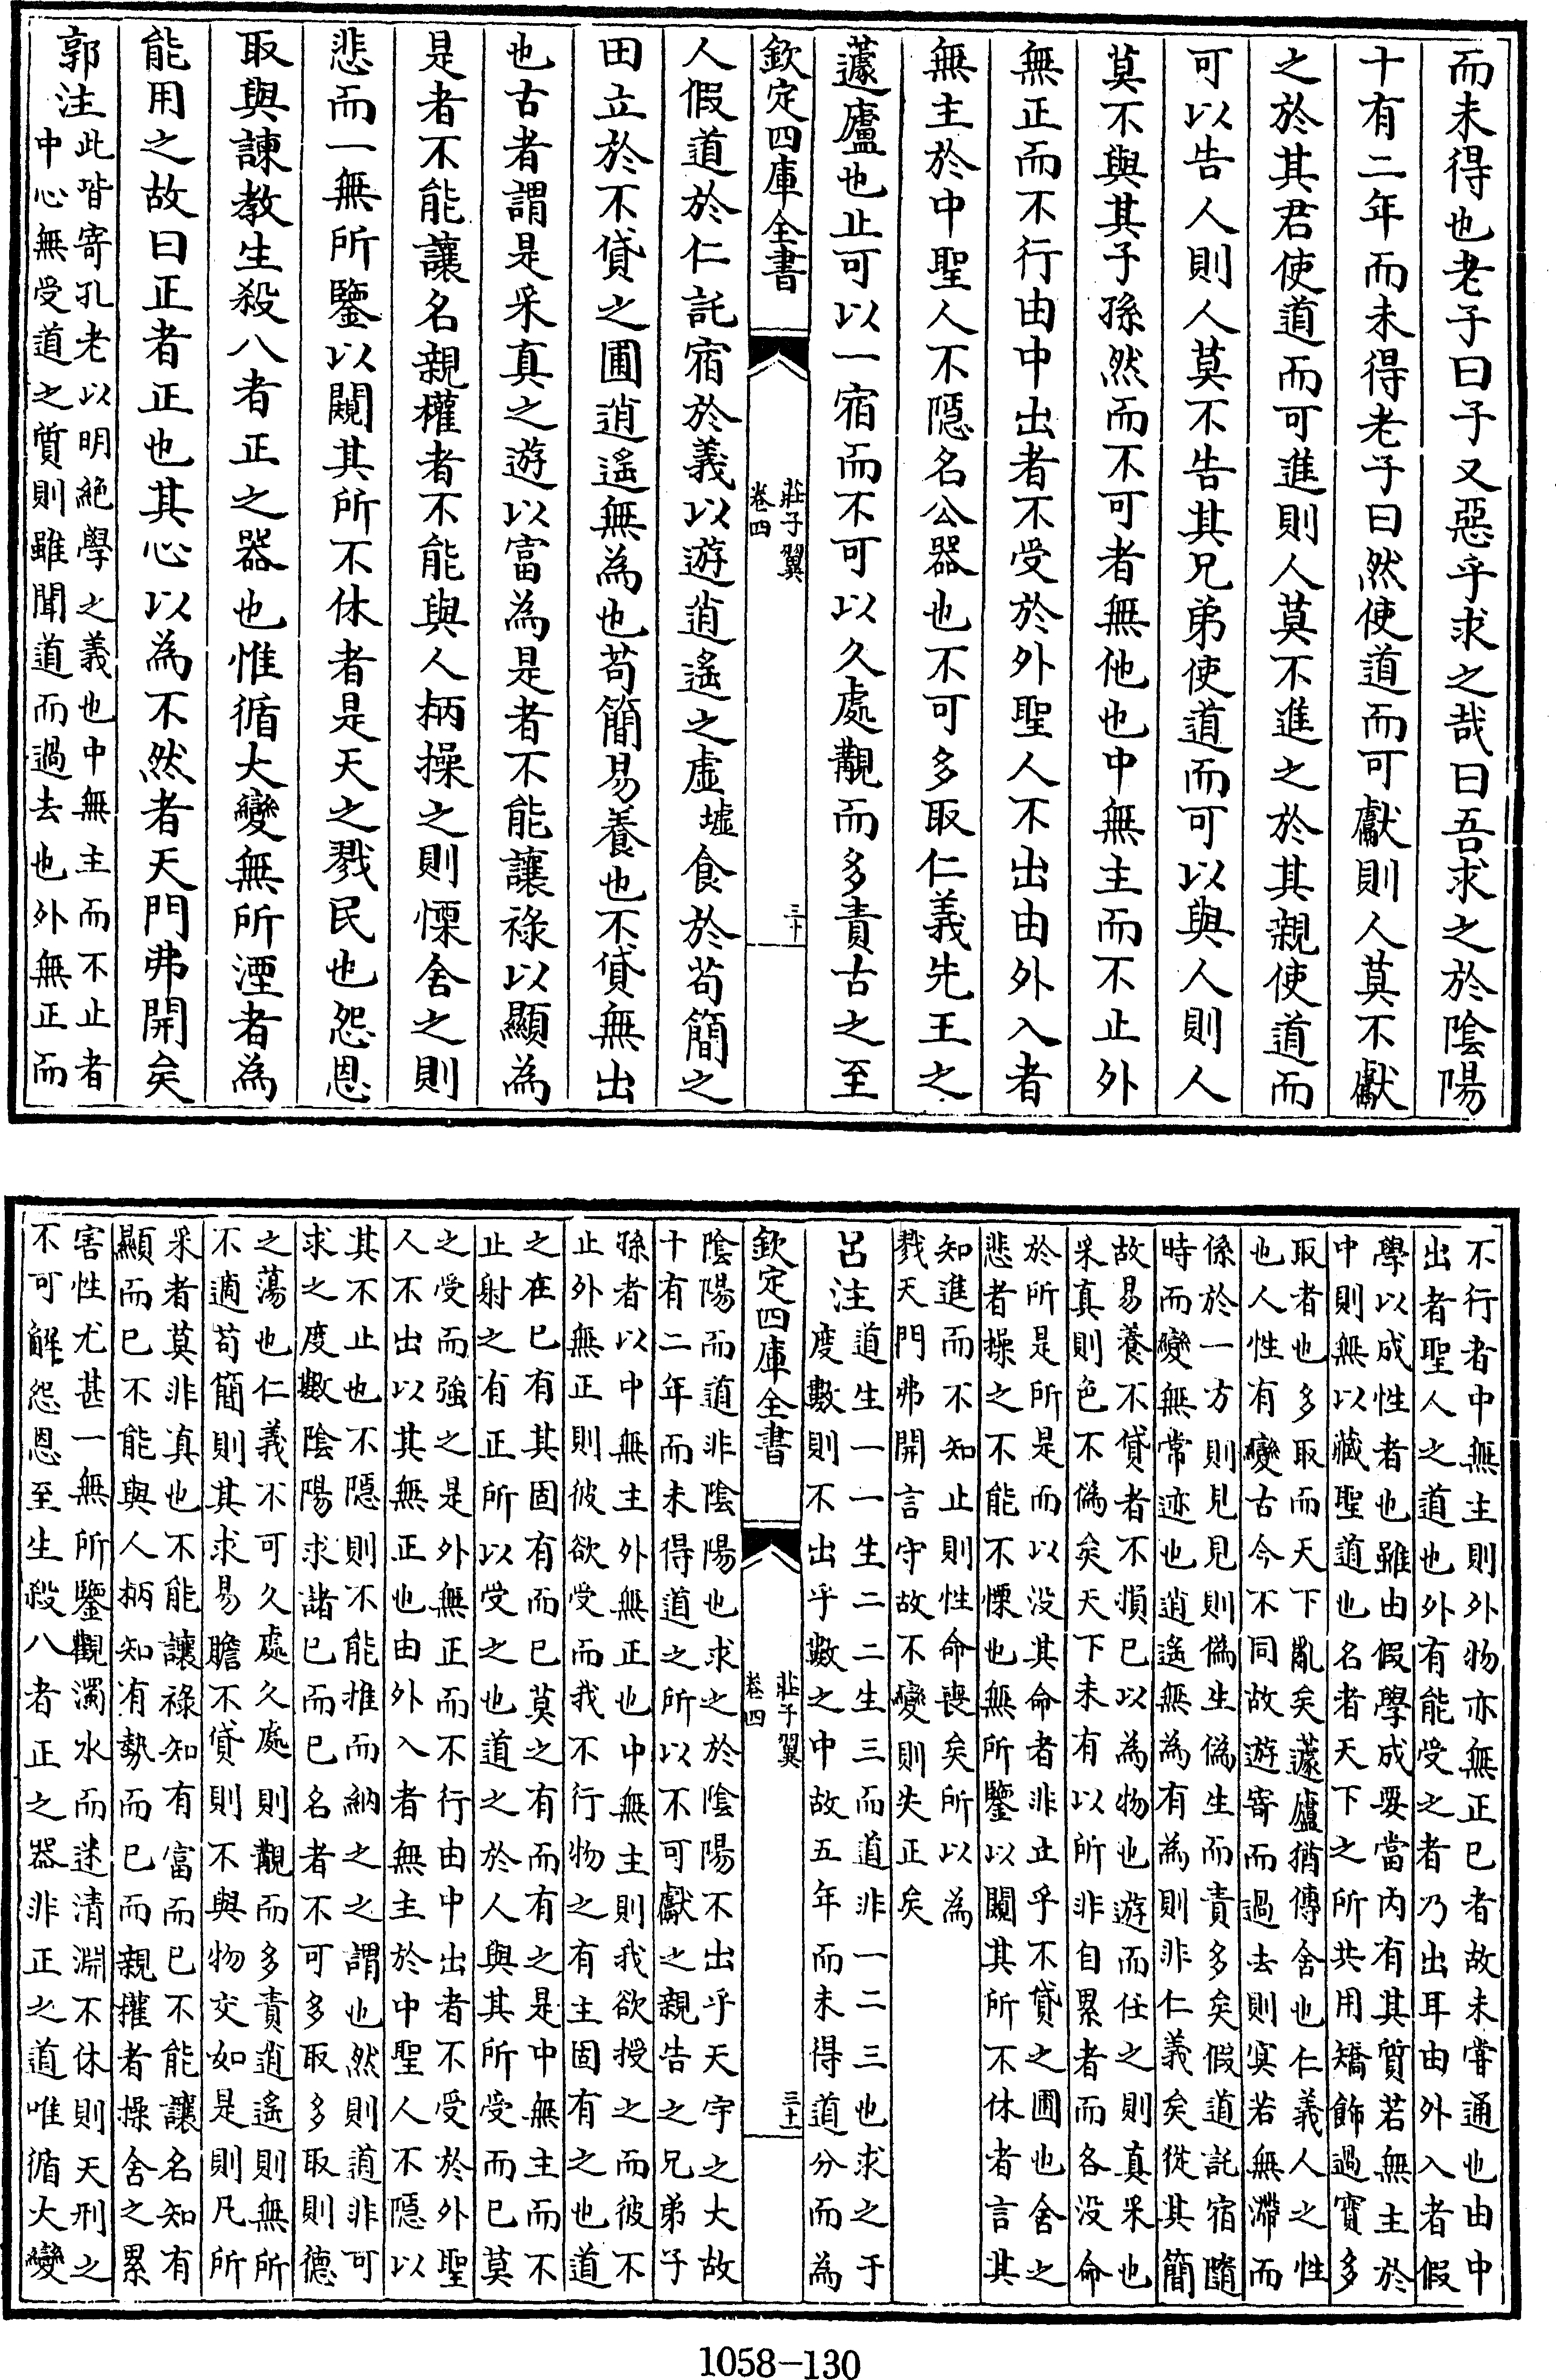 而未得也老子曰子又惡乎求之哉曰吾求之於陰陽
十有二年而未得老子曰然使道而可獻則人莫不獻
之於其君使道而可進則人莫不進之於其親使道而
可以告人則人莫不告其兄弟使道而可以與人則人
莫不與其子孫然而不可者無他也中無主而不止外
無正而不行由中出者不受於外聖人不出由外入者
無主於中聖人不隱名公器也不可多取仁義先王之
蘧廬也止可以一宿而不可以久處覯而多責古之至
欽定四庫全書
莊子翼
卷四
三十
人假道於仁託宿於義以遊逍遙之虛墟食於苟簡之
田立於不貸之圃逍遙無為也苟簡易養也不貸無出
也古者謂是采真之遊以富為是者不能讓祿以顯為
是者不能讓名親權者不能與人柄操之則慄舍之則
悲而一無所鑒以闚其所不休者是天之戮民也怨恩
取與諫教生殺八者正之器也惟循大變無所湮者為
能用之故曰正者正也其心以為不然者天門弗開矣
郭注
此皆寄孔老以明絶學之義也中無主而不止者
中心無受道之質則雖聞道而過去也外無正而
不行者中無主則外物亦無正已者故未嘗通也由中
出者聖人之道也外有能受之者乃出耳由外入者假
學以成性者也雖由假學成要當内有其質若無主於
中則無以藏聖道也名者天下之所共用矯飾過實多
取者也多取而天下亂矣蘧廬猶傳舍也仁義人之性
也人性有變古今不同故遊寄而過去則冥若無滯而
係於一方則見見則偽生偽生而責多矣假道託宿隨
時而變無常迹也逍遙無為有為則非仁義矣從其簡
故易養不貸者不損已以為物也遊而任之則真采也
采真則色不偽矣天下未有以所非自累者而各没命
於所是所是而以没其命者非立乎不貸之圃也舍之
悲者操之不能不慄也無所鑒以闚其所不休者言其
知進而不知止則性命喪矣所以為
戮天門弗開言守故不變則失正矣
呂注
道生一一生二二生三而道非一二三也求之于
度數則不出乎數之中故五年而未得道分而為
欽定四庫全書
莊子翼
卷四
三十一
陰陽而道非陰陽也求之於陰陽不出乎天宇之大故
十有二年而未得道之所以不可獻之親告之兄弟子
孫者以中無主外無正也中無主則我欲授之而彼不
止外無正則彼欲受而我不行物之有主固有之也道
之在已有其固有而已莫之有而有之是中無主而不
止射之有正所以受之也道之於人與其所受而已莫
之受而強之是外無正而不行由中出者不受於外聖
人不出以其無正也由外入者無主於中聖人不隱以
其不止也不隱則不能推而納之之謂也然則道非可
求之度數陰陽求諸已而已名者不可多取多取則德
之蕩也仁義不可久處久處則覯而多責逍遙則無所
不適苟簡則其求易贍不貸則不與物交如是則凡所
采者莫非真也不能讓祿知有富而已不能讓名知有
顯而已不能與人柄知有勢而已而親權者操舍之累
害性尤甚一無所鑒觀濁水而迷清淵不休則天刑之
不可解怨恩至生殺八者正之器非正之道唯循大變
1058-130